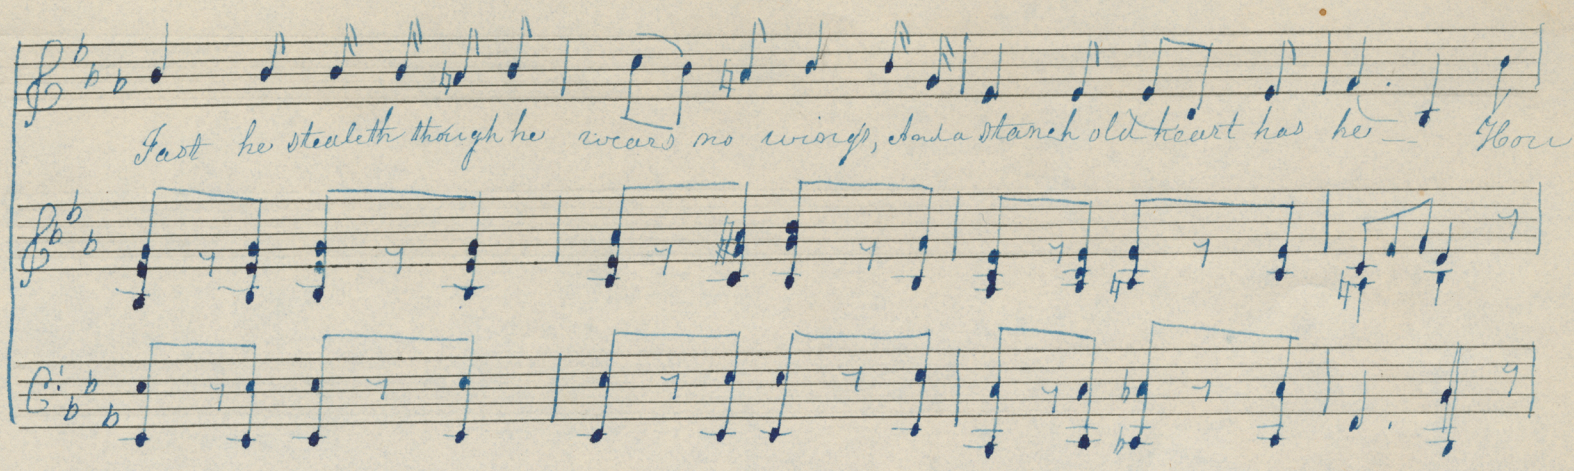 Fast he stealeth though he wears no wings, And a stanch old heart has he — How